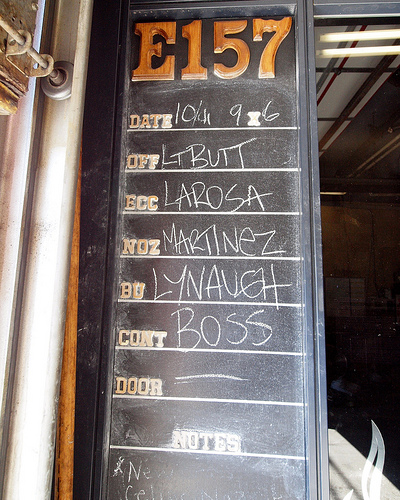 E157
DATE 10/11 9 X 6
OFF LT BUTT
ECC LAROSA
NOZ MARTINEZ
BU LYNAUGH
CONT BOSS
DOOR —
NOTES